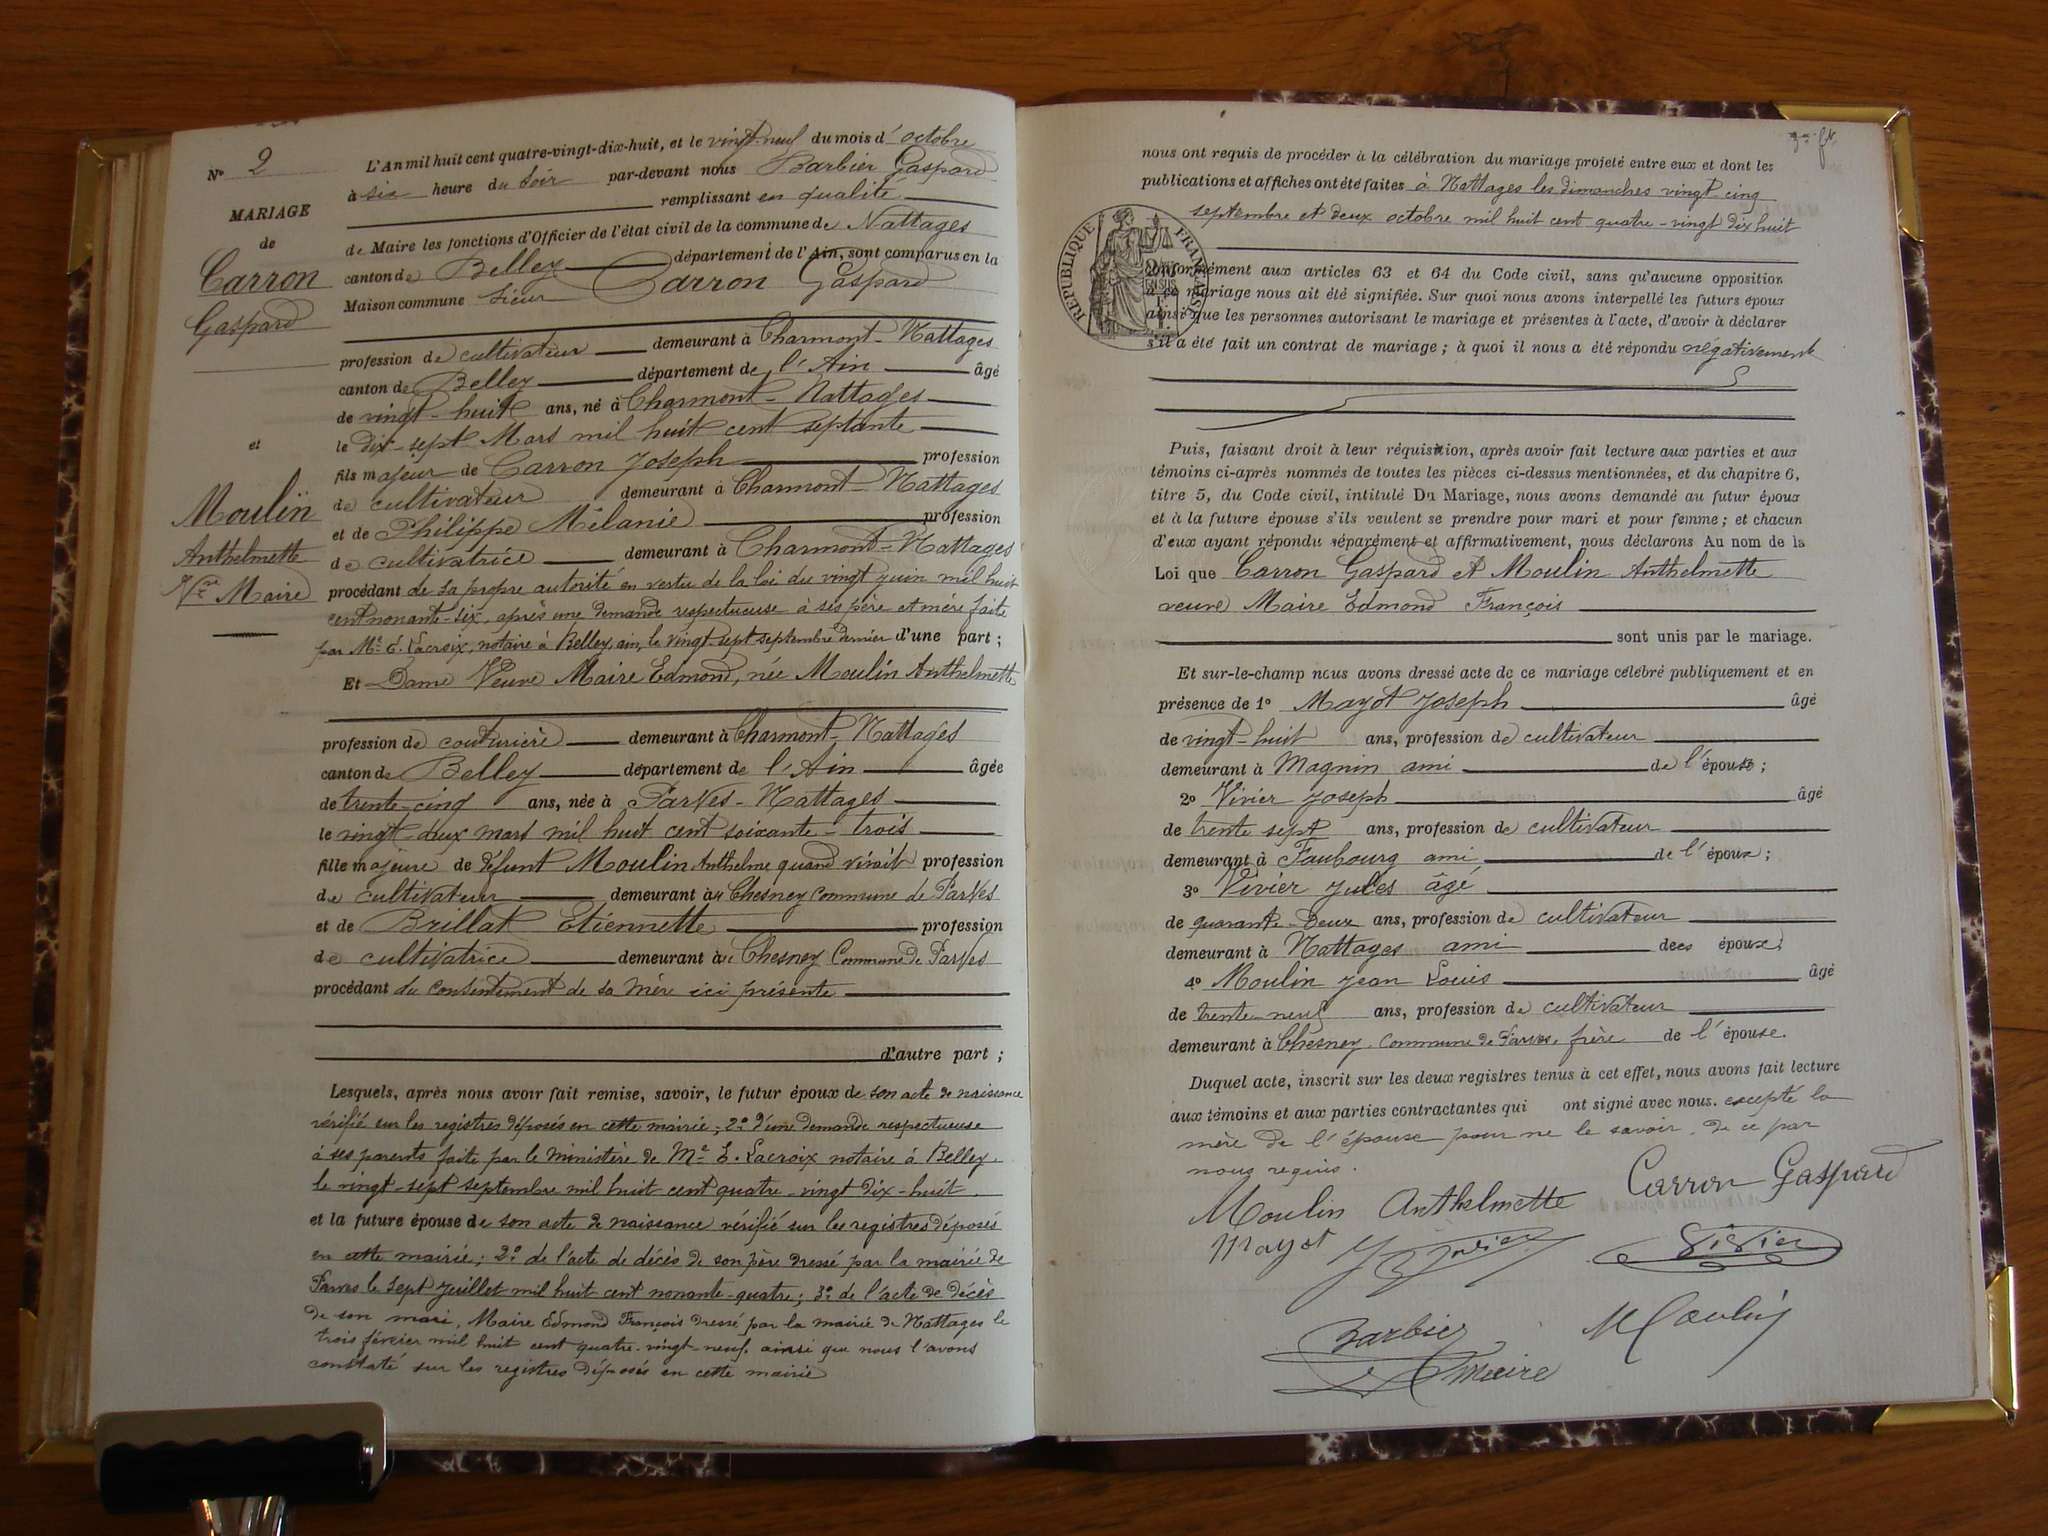 N° 2
MARIAGE
de
Carron
Gaspard
et
Moulin
Anthelmette
Vve Maire
L'An mil huit cent quatre-vingt-dix-huit, et le vingt-neuf du mois d'octobre
à six heure du soir par-devant nous Barbier Gaspard
remplissant en qualité
de Maire les fonctions d'Officier de l'état civil de la commune de Nattages
canton de Belley département de l'Ain, sont comparus en la
Maison commune sieur Carron Gaspard
profession de cultivateur demeurant à Charmont-Nattages
canton de Belley département de l'Ain âgé
de vingt-huit ans, né à Charmont-Nattages
le dix-sept Mars mil huit cent septante
fils majeur de Carron Joseph profession
de cultivateur demeurant à Charmont-Nattages
et de Philippe Mélanie profession
de cultivatrice demeurant à Charmont-Nattages
procédant de sa propre autorité en vertu de la loi du vingt juin mil huit
cent nonante-six, après une demande respectueuse à ses père et mère faite
par Me E. Lacroix, notaire à Belley, ain, le vingt-sept septembre dernier d'une part ;
Et Dame Veuve Maire Edmond, née Moulin Anthelmette
profession de couturière demeurant à Charmont-Nattages
canton de Belley département de l'Ain âgée
de trente-cinq ans, née à Parves-Nattages
le vingt-deux mars mil huit cent soixante-trois
fille majeure de défunt Moulin Anthelme quand vivait profession
de cultivateur demeurant à Chesney Commune de Parves
et de Brillat Etiennette profession
de cultivatrice demeurant à Chesney Commune de Parves
procédant du consentement de sa mère ici présente
d'autre part ;
Lesquels, après nous avoir fait remise, savoir, le futur époux de son acte de naissance
vérifié sur les registres déposés en cette mairie ; 2° d'une demande respectueuse
à ses parents faite par le ministère de Me E. Lacroix notaire à Belley
le vingt-sept septembre mil huit cent quatre-vingt dix-huit
et la future épouse de son acte de naissance vérifié sur les registres déposés
en cette mairie ; 2° de l'acte de décès de son père dressé par la mairie de
Parves le sept juillet mil huit cent nonante-quatre ; 3° de l'acte de décès
de son mari, Maire Edmond François dressé par la mairie de Nattages le
trois février mil huit cent quatre-vingt-neuf. ainsi que nous l'avons
constaté sur les registres déposés en cette mairie
nous ont requis de procéder à la célébration du mariage projeté entre eux et dont les
publications et affiches ont été faites à Nattages les dimanches vingt-cinq
septembre et deux octobre mil huit cent quatre-vingt dix huit
RÉPUBLIQUE FRANÇAISE
conformément aux articles 63 et 64 du Code civil, sans qu'aucune opposition
à ce mariage nous ait été signifiée. Sur quoi nous avons interpellé les futurs époux
ainsi que les personnes autorisant le mariage et présentes à l'acte, d'avoir à déclarer
s'il a été fait un contrat de mariage ; à quoi il nous a été répondu négativement
Puis, faisant droit à leur réquisition, après avoir fait lecture aux parties et aux
témoins ci-après nommés de toutes les pièces ci-dessus mentionnées, et du chapitre 6,
titre 5, du Code civil, intitulé Du Mariage, nous avons demandé au futur époux
et à la future épouse s'ils veulent se prendre pour mari et pour femme ; et chacun
d'eux ayant répondu séparément et affirmativement, nous déclarons Au nom de la
Loi que Carron Gaspard et Moulin Anthelmette
veuve Maire Edmond François
sont unis par le mariage.
Et sur-le-champ nous avons dressé acte de ce mariage célébré publiquement et en
présence de 1° Mayot Joseph âgé
de vingt-huit ans, profession de cultivateur
demeurant à Magnin ami de l'épouse ;
2° Vivier Joseph âgé
de trente sept ans, profession de cultivateur
demeurant à Faubourg ami de l'époux ;
3° Vivier Jules âgé
de quarante-Deux ans, profession de cultivateur
demeurant à Nattages ami des époux ;
4° Moulin Jean Louis âgé
de trente-neuf ans, profession de cultivateur
demeurant à Chesney. Commune de Parves. frère de l'épouse.
Duquel acte, inscrit sur les deux registres tenus à cet effet, nous avons fait lecture
aux témoins et aux parties contractantes qui ont signé avec nous. excepté la
mère de l'épouse pour ne le savoir. de ce par
nous requis.
Carron Gaspard
Moulin Anthelmette
Mayot J Vivier Vivier
Barbier Moulin
Maire